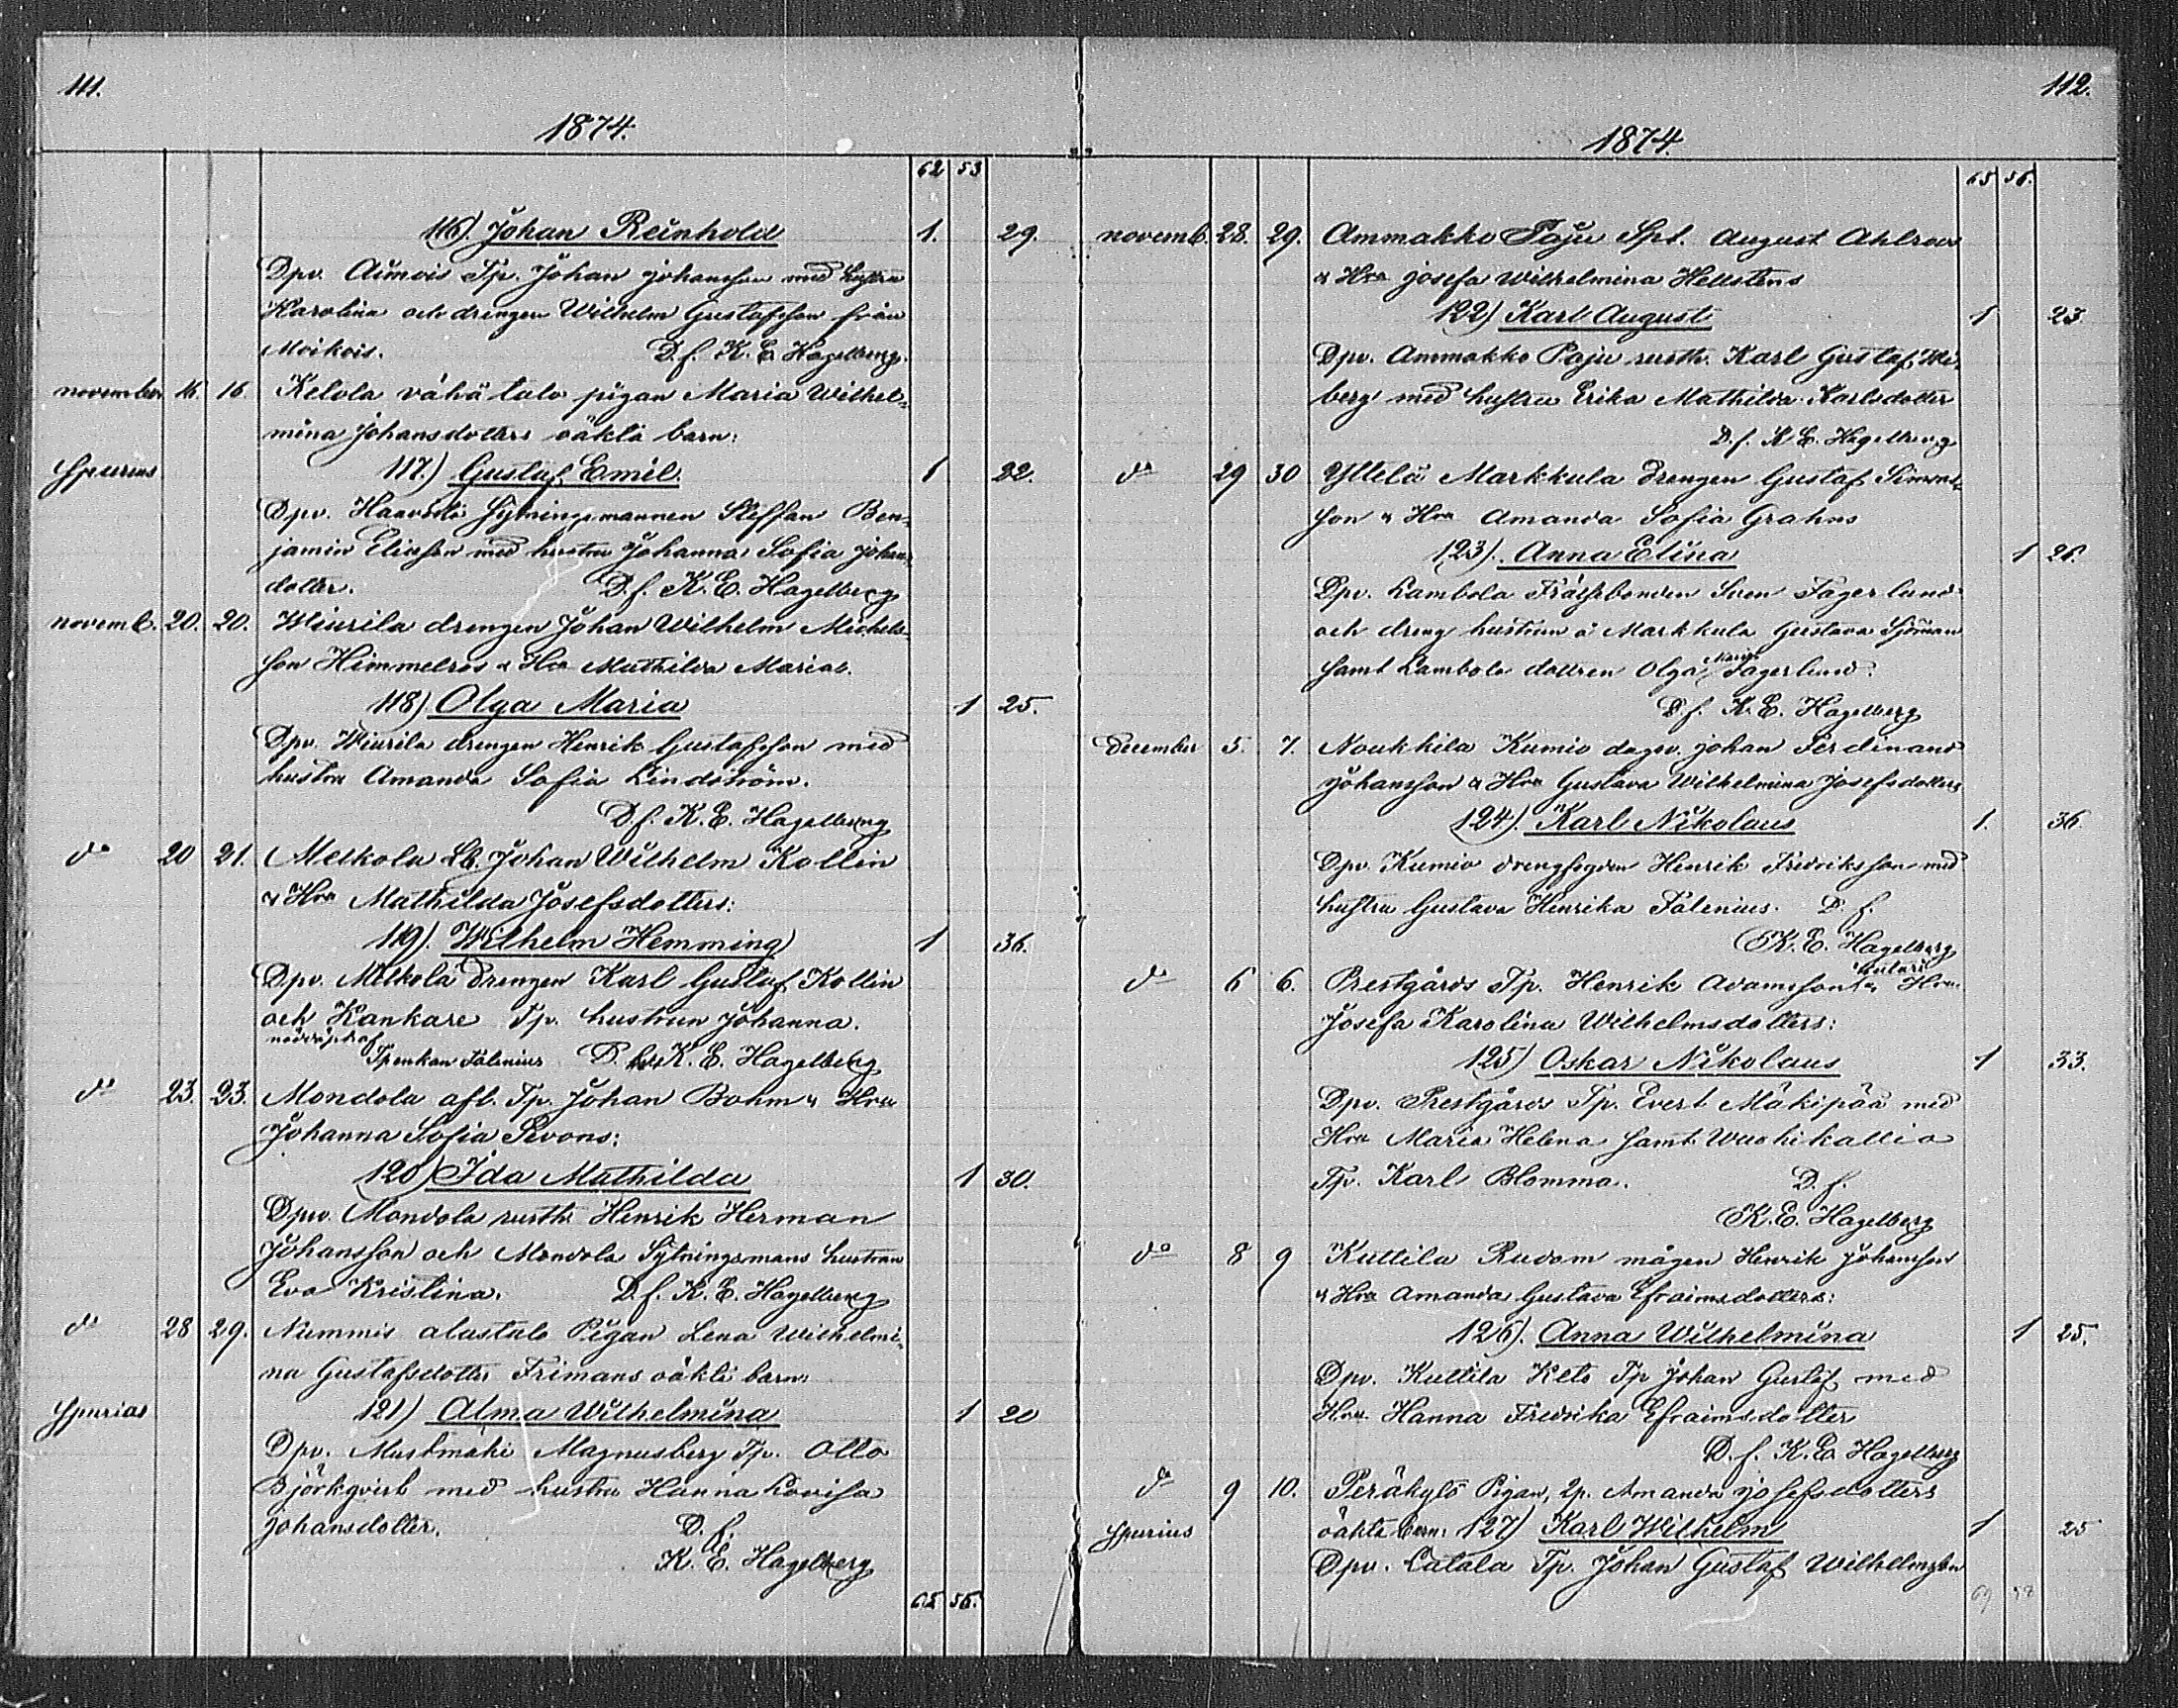 111.
1874.
62 53
116) Johan Reinhold 1. 29.
Dpv. Aimois Tp. Johan Johansson med hustru
Karolina och drengen Wilhelm Gustafsson från
Moikois. D.f. K. E. Hagelberg.
november 16. 16. Ketola vähätalo pigan Maria Wilhel-
mina Johansdotters oäkta barn:
Spurius 117.) Gustaf Emil. 1 22.
Dpv. Sytningsmannen Steffan Ben-
jamin Eliasson med hustru Johanna Sofia Johans-
dotter. D.f. K. E. Hagelberg
novemb. 20. 20. Wiurila drengen Johan Wilhelm Michels-
son Himmelros & Hru Mathilda Marias.
118) Olga Maria 1 25.
Dpv. Wiurila drengen Henrik Gustafsson med
hustru Amanda Sofia Lindström.
D.f. K. E. Hagelberg
do 20 21. Melkola Lb. Johan Wilhelm Kollin
& Hru Mathilda Josefsdotters:
119). Wilhelm Hemming 1 36.
Dpv. Melkola drengen Karl Gustaf Kollin
och Kankare Tp. hustrun Johanna.
nöddöpt af
Tpenkan Palenius D. K. E. Hagelberg
do 23. 23. Mondola afl. Tp. Johan Bohm & Hru
Johanna Sofia Pivons:
120) Ida Mathilda 1 30.
Dpv. Mondola rusth Henrik Herman
Johansson och Mondola Sytningsmans hustrun
Eva Kristina. D.f. K. E. Hagelberg
do 28 29. Nummis alastalo Pigan Lena Wilhelmi-
na Gustafsdotter Frimans oäkta barn:
Spurias 121) Alma Wilhelmina 1 20
Dpv. Mustmäki Magnusberg Tp. Otto
Björkqvist med hustru Hanna Lovisa
Johansdotter. D.f.
K. E. Hagelberg
65 56.
112.
1874.
65 56.
novemb. 28. 29. Ammakko Paju Spt. August Ahlroos
& Hru Josefa Wilhelmina Hellstens
122) Karl August 1 23
Dpv. Ammakko Paju rusth. Karl Gustaf
berg med hustru Erika Mathilda Karlsdotter
D.f. K. E. Hagelberg
do 29 30 Yttelä Markkula drengen Gustaf Simons-
son & Hru Amanda Sofia Grahns
123). Anna Elina 1 26.
Dpv. Lambola Frälsebonden Sven Fagerlund
och dreng hustrun å Markkula Gustava Sjöman
Maria
samt Lambola dottren Olga Fagerlund.
D.f. K. E. Hagelberg
December 5. 7. Noukkila Kumio dagsv. Johan Ferdinand
Johansson & Hru Gustava Wilhelmina Josefsdotters
124). Karl Nikolaus 1. 36.
Dpv. Kumio drengfogden Henrik Fredriksson med
hustru Gustava Henrika Palenius. D.f.
K. E. Hagelberg
do 6 6. Prestgårds Tp. Henrik Adamsson & Hru
Josefa Karolina Wilhelmsdotters:
125) Oskar Nikolaus 1 33.
Dpv. Prestgårds Tp. Evert Mäkipää med
Hru Maria Helena samt Wuohikallio
Tp. Karl Blomma. D.f.
K. E. Hagelberg
do 8 9 Kuttila Rudom mågen Henrik Johansson
& Hru Amanda Gustava Efraimsdotters:
126). Anna Wilhelmina 1 25.
Dpv. Kuttila Keto Tp Johan Gustaf med
Hru Hanna Fredrika Efraimsdotter
D.f. K. E. Hagelberg
do 9 10. Peräkylä Pigan, Amanda Josefsdotters
Spurius oäkta barn: 127) Karl Wilhelm 1 25
Dpv. Catala Tp. Johan Gustaf Wilhelmsson
69 58